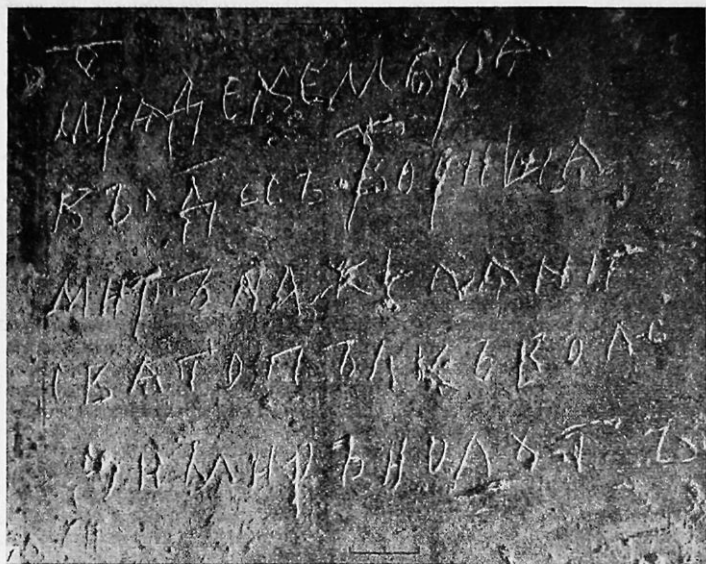 МЦѦ ДЕКЕМБРѦ
ВЪ Д҃ Е СЪТВОРИША
МИРЪ НА ЖЕЛѦНИ
СВѦТОПЪЛКЪ ВОЛО
ДИМИРЪ И ОЛЬГЪ